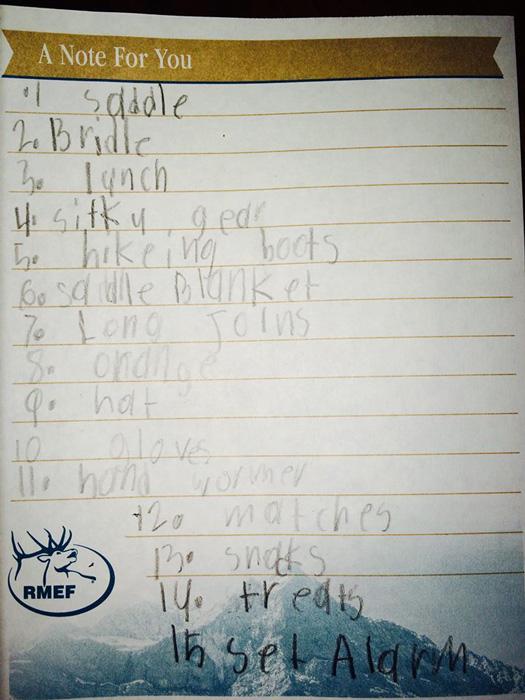 A Note For You
#1 saddle
2. Bridle
3. lunch
4. sitku gear
5. hikeing boots
6. saddle Blanket
7. Long Joins
8. orange
9. hat
10 gloves
11. hand wormer
12. matches
13. snaks
14. treats
15 set Alarm
RMEF